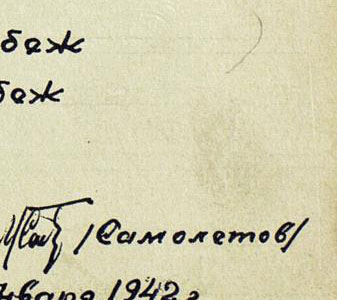 баж
баж
/Самолетов/
января 1942 г